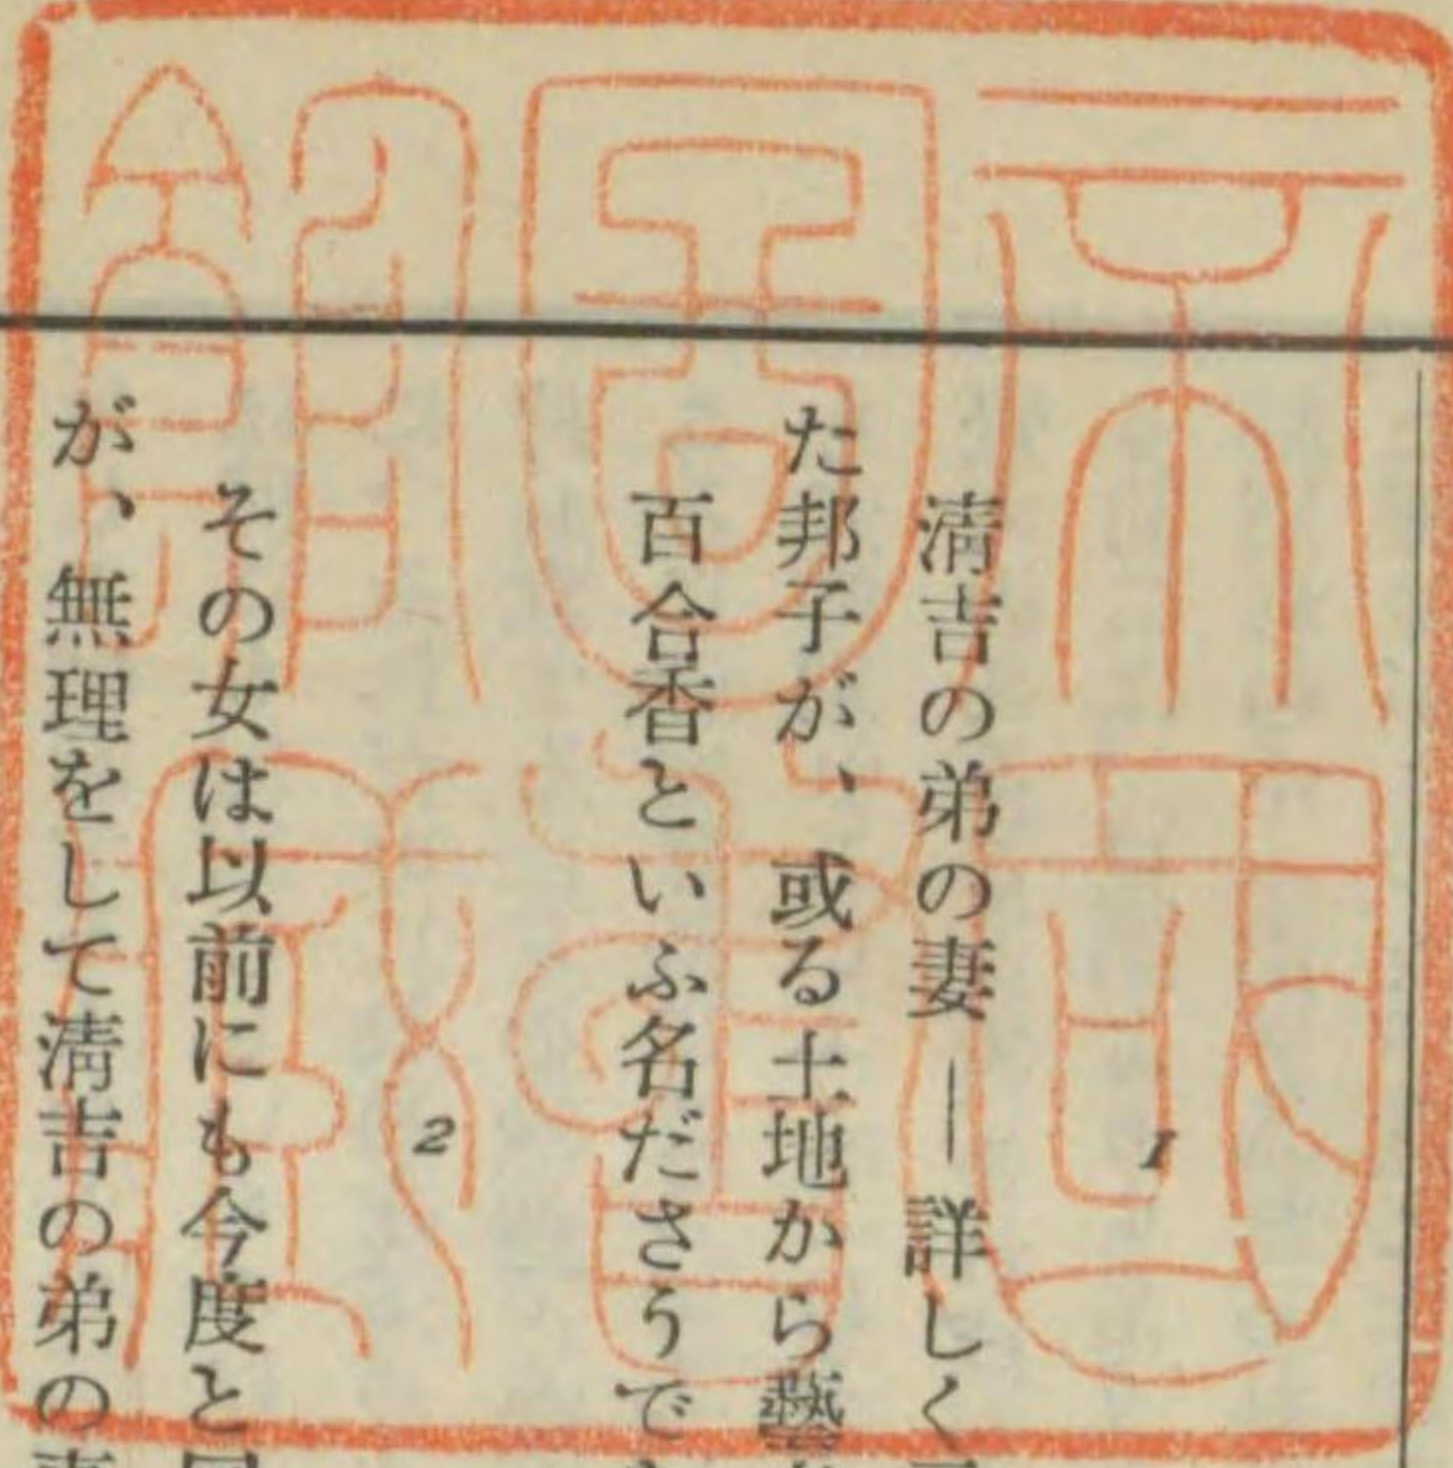 1
淸吉の弟の妻——詳しく
た邦子が、或る土地から藝
百合香といふ名ださうで
2
その女は以前にも今度と
が、無理をして淸吉の弟の